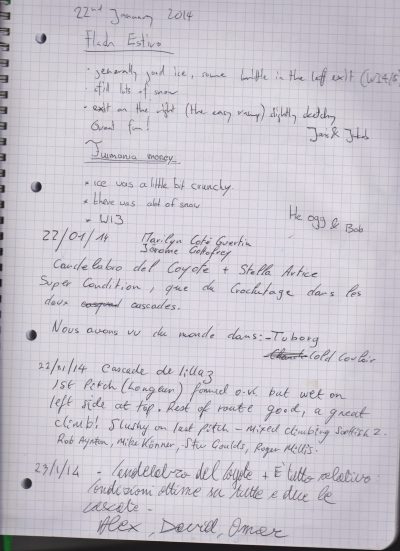 22nd January 2014
Flash Estivo
• generally good ice, some brittle in the left exit (WI4/5)
• still lots of snow
• exit on the right (the easy ramp) slightly
Great fun!
Jan & Jakob
money
* ice was a little bit crunchy
* there was alot of snow
* WI3
& Bob
22/01/14 Marilyn Coté
Jérôme
Candelabro del Coyote + Stella Artice
Super Condition, que du Crochetage dans les
deux cascades.
Nous avons vu du monde dans: - Tuborg
Cold Couloir
22/01/14 Cascade de Lillaz
1st Pitch (Longeur) formed o.k. but wet on
left side at top. Rest of route good, a great
climb! Slushy on last pitch - Mixed climbing Scottish 2.
Rob Aynton, Mike Könner, Stu Goulds, Roger Mills.
23/1/14 - Candelabro del Coyote + È tutto relativo
Condizioni ottime su tutte e due le
cascate -
Alex, David, Omar